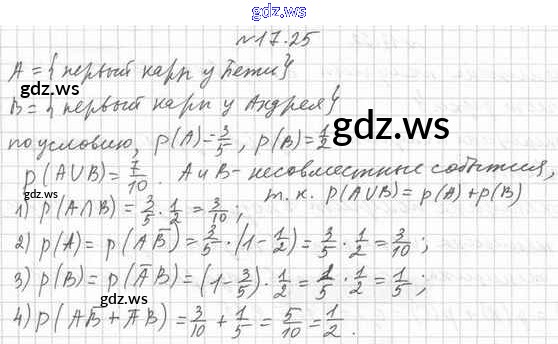 gdz.ws
№17.25
A = {первый карп у Пети}
B = {первый карп у Андрея}
gdz.ws
gdz.ws
по условию, p(A)=3/5, p(B)=1/2
p(A∪B)=7/10. A и B - несовместные события,
т.к. p(A∪B) = p(A)+p(B)
gdz.ws
1) p(A∩B) = 3/5 · 1/2 = 3/10;
2) p(A) = p(A B̄) = 3/5 · (1 - 1/2) = 3/5 · 1/2 = 3/10;
3) p(B) = p(Ā B) = (1 - 3/5) · 1/2 = 2/5 · 1/2 = 1/5;
gdz.ws
4) p(AB̄ + ĀB) = 3/10 + 1/5 = 5/10 = 1/2.